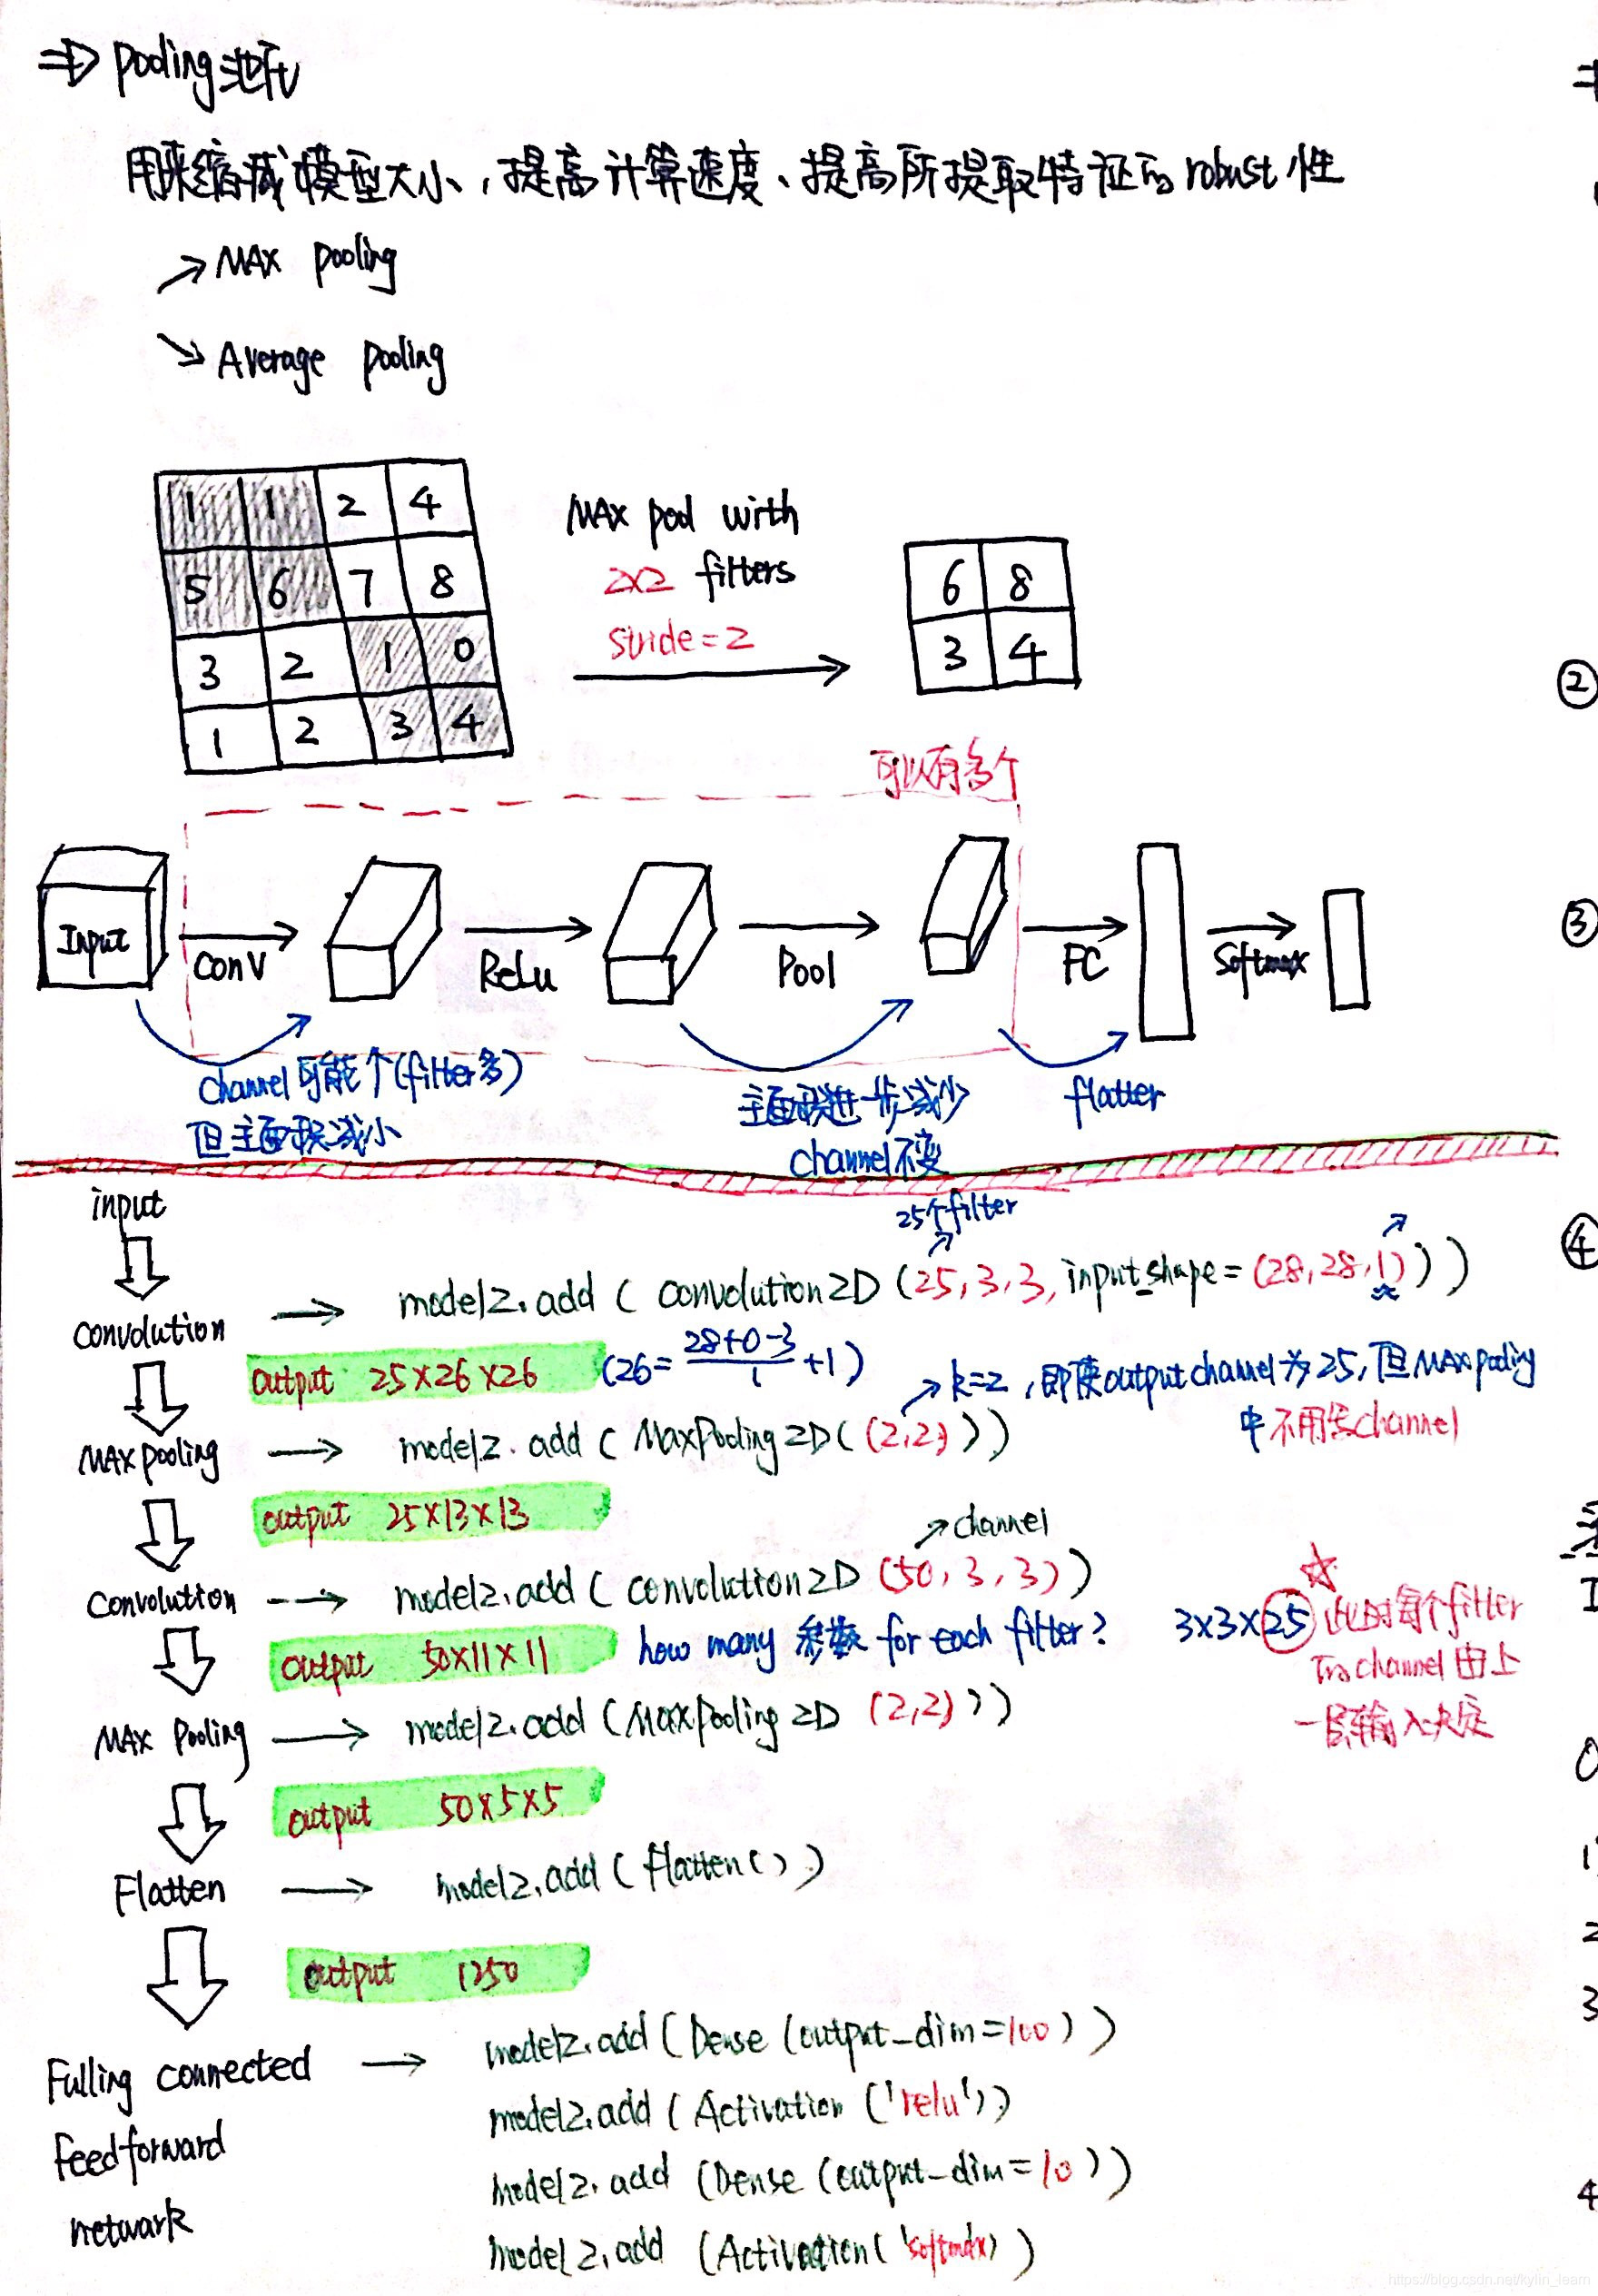 ⇒ pooling 池化
用来缩减模型大小，提高计算速度、提高所提取特征的robust性
↗ MAX pooling
↘ Average pooling
1 1 2 4
5 6 7 8
3 2 1 0
1 2 3 4
MAX pool with
2×2 filters
stride=2
6 8
3 4
②
可以有多个
Input
conv
Relu
Pool
FC
Softmax
③
channel可能↑(filter多)
但主面积减小
主面积进一步减少
channel不变
flatter
input
25个filter
④
convolution → model2.add ( convolution2D (25,3,3, input_shape = (28,28,1) ) )
output 25×26×26 (26= \frac{28+0-3}{1} +1)
k=2，即使output channel为25，但MAXpooling
中不用写channel
MAXpooling → model2.add ( MaxPooling2D( (2,2) ) )
output 25×13×13
channel
convolution → model2.add ( convolution2D (50,3,3) )
output 50×11×11
how many 参数 for each filter?
3×3×25 此时每个filter
channel由上
一层输入决定
MAX Pooling → model2.add (MaxPooling2D (2,2) ))
output 50×5×5
Flatten → model2.add ( flatten() )
output 1250
Fulling connected → model2.add (Dense (output_dim=100) )
feedforward
network
model2.add ( Activation ('relu'))
model2.add (Dense (output_dim=10 ))
model2.add (Activation( 'softmax) )
1
2
3
4
https://blog.csdn.net/kylin_learn